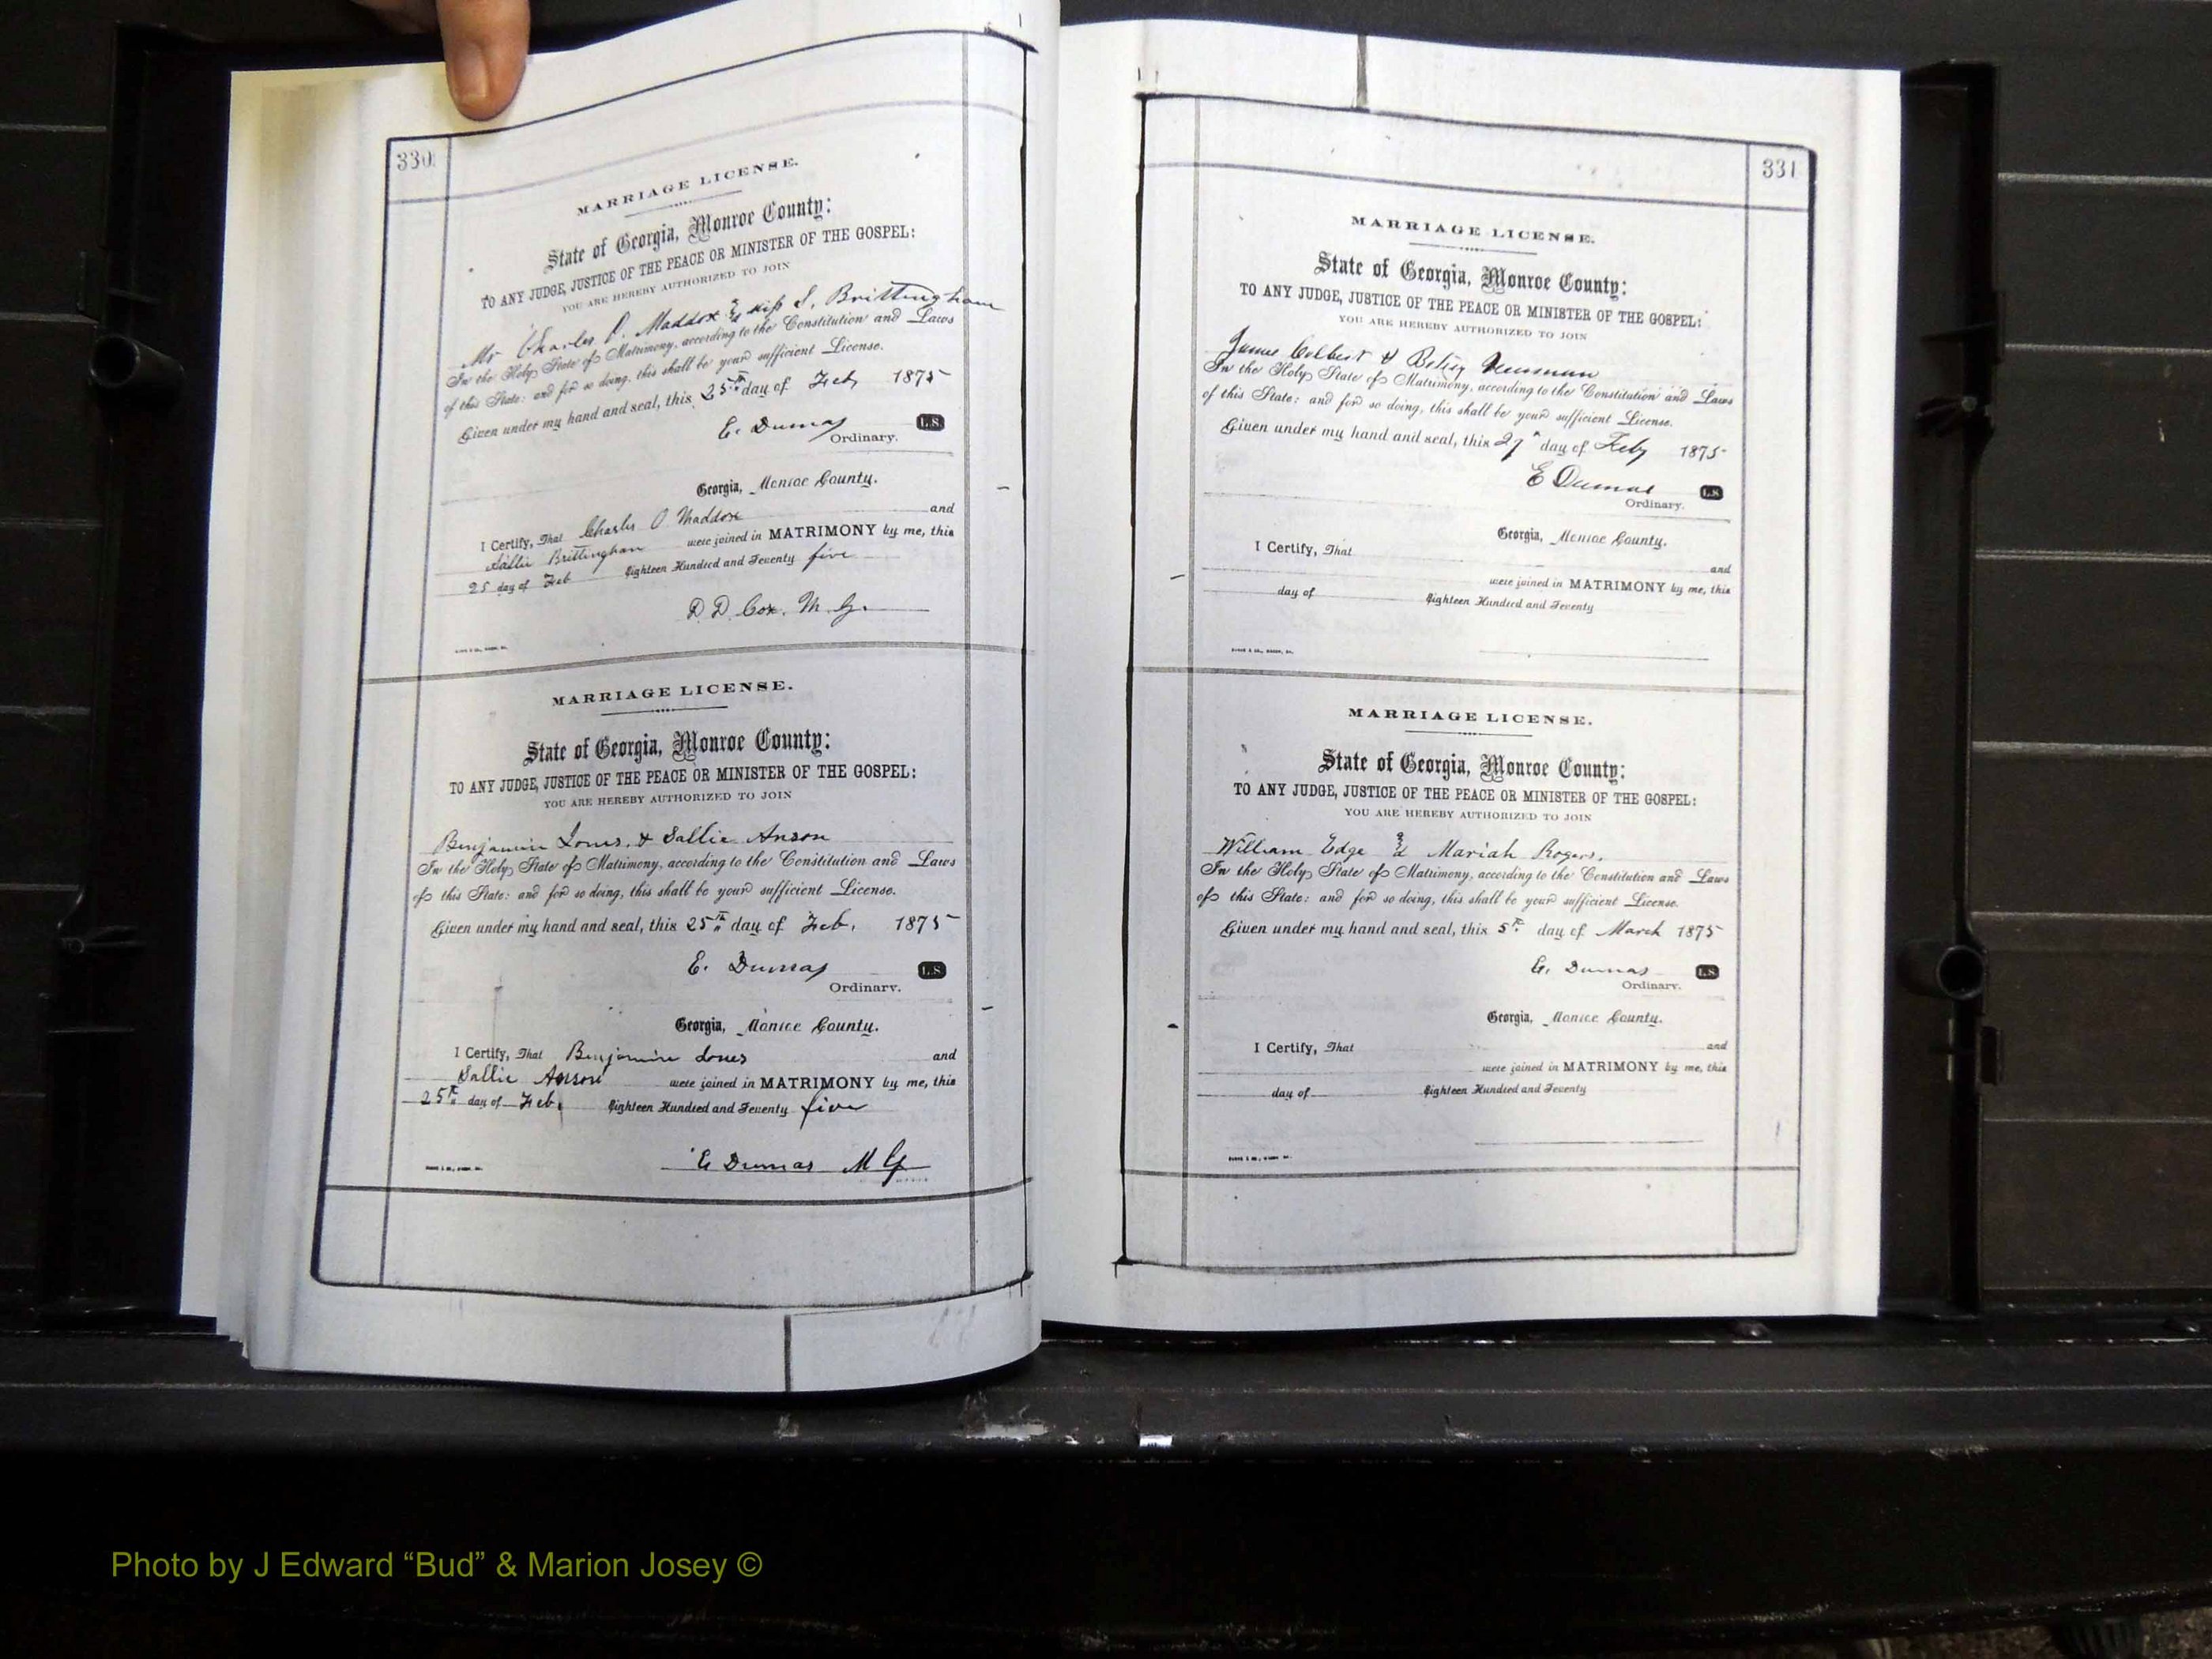 330
MARRIAGE LICENSE.
State of Georgia, Monroe County:
TO ANY JUDGE, JUSTICE OF THE PEACE OR MINISTER OF THE GOSPEL:
YOU ARE HEREBY AUTHORIZED TO JOIN
Mr Charles O. Maddox & Miss S. Brittingham
In the Holy State of Matrimony, according to the Constitution and Laws
of this State: and for so doing, this shall be your sufficient License.
Given under my hand and seal, this 25th day of Feby 1875
E. Dumas L.S.
Ordinary.
Georgia, Monroe County.
I Certify, That Charles O Maddox and
Sallie Brittingham were joined in MATRIMONY by me, this
25 day of Feb Eighteen Hundred and Seventy five
D. D. Cox. M. G.
MARRIAGE LICENSE.
State of Georgia, Monroe County:
TO ANY JUDGE, JUSTICE OF THE PEACE OR MINISTER OF THE GOSPEL:
YOU ARE HEREBY AUTHORIZED TO JOIN
Benjamin Jones & Sallie Anson
In the Holy State of Matrimony, according to the Constitution and Laws
of this State: and for so doing, this shall be your sufficient License.
Given under my hand and seal, this 25th day of Feb. 1875
E. Dumas L.S.
Ordinary.
Georgia, Monroe County.
I Certify, That Benjamin Jones and
Sallie Anson were joined in MATRIMONY by me, this
25th day of Feb. Eighteen Hundred and Seventy five
E Dumas M G
331
MARRIAGE LICENSE.
State of Georgia, Monroe County:
TO ANY JUDGE, JUSTICE OF THE PEACE OR MINISTER OF THE GOSPEL:
YOU ARE HEREBY AUTHORIZED TO JOIN
James Colbert & Betsy Newman
In the Holy State of Matrimony, according to the Constitution and Laws
of this State: and for so doing, this shall be your sufficient License.
Given under my hand and seal, this 27th day of Feby 1875
E Dumas L.S.
Ordinary.
Georgia, Monroe County.
I Certify, That
and
were joined in MATRIMONY by me, this
day of Eighteen Hundred and Seventy
MARRIAGE LICENSE.
State of Georgia, Monroe County:
TO ANY JUDGE, JUSTICE OF THE PEACE OR MINISTER OF THE GOSPEL:
YOU ARE HEREBY AUTHORIZED TO JOIN
William Edge & Mariah Rogers.
In the Holy State of Matrimony, according to the Constitution and Laws
of this State: and for so doing, this shall be your sufficient License.
Given under my hand and seal, this 5th day of March 1875
E. Dumas L.S.
Ordinary.
Georgia, Monroe County.
I Certify, That and
were joined in MATRIMONY by me, this
day of Eighteen Hundred and Seventy
Photo by J Edward “Bud” & Marion Josey ©